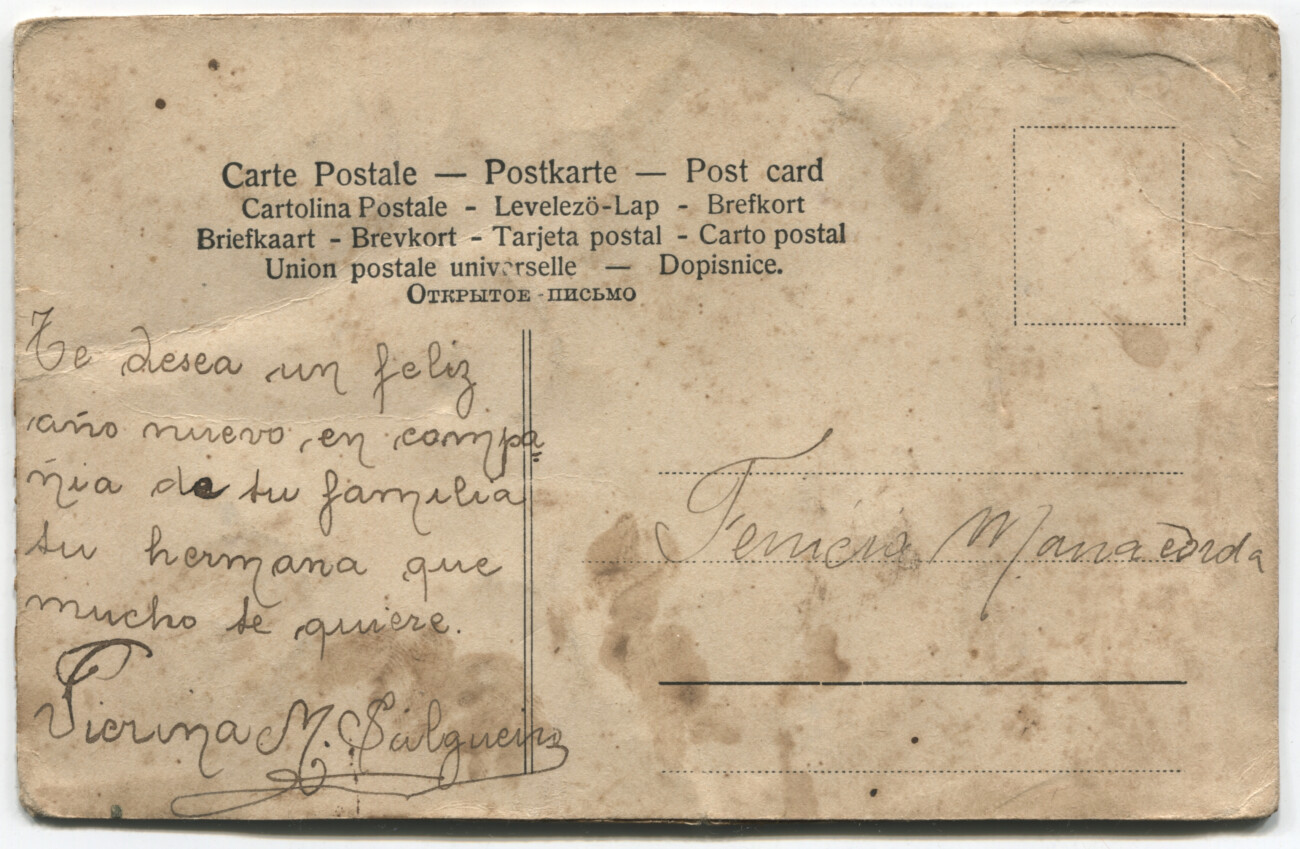 Carte Postale — Postkarte — Post card
Cartolina Postale - Levelezö-Lap - Brefkort
Briefkaart - Brevkort - Tarjeta postal - Carto postal
Union postale universelle — Dopisnice.
Открытое письмо
Te desea un feliz
año nuevo en compa
ñia de tu familia
tu hermana que
mucho te quiere.
Pierina M. Salgueiro
Manacorda